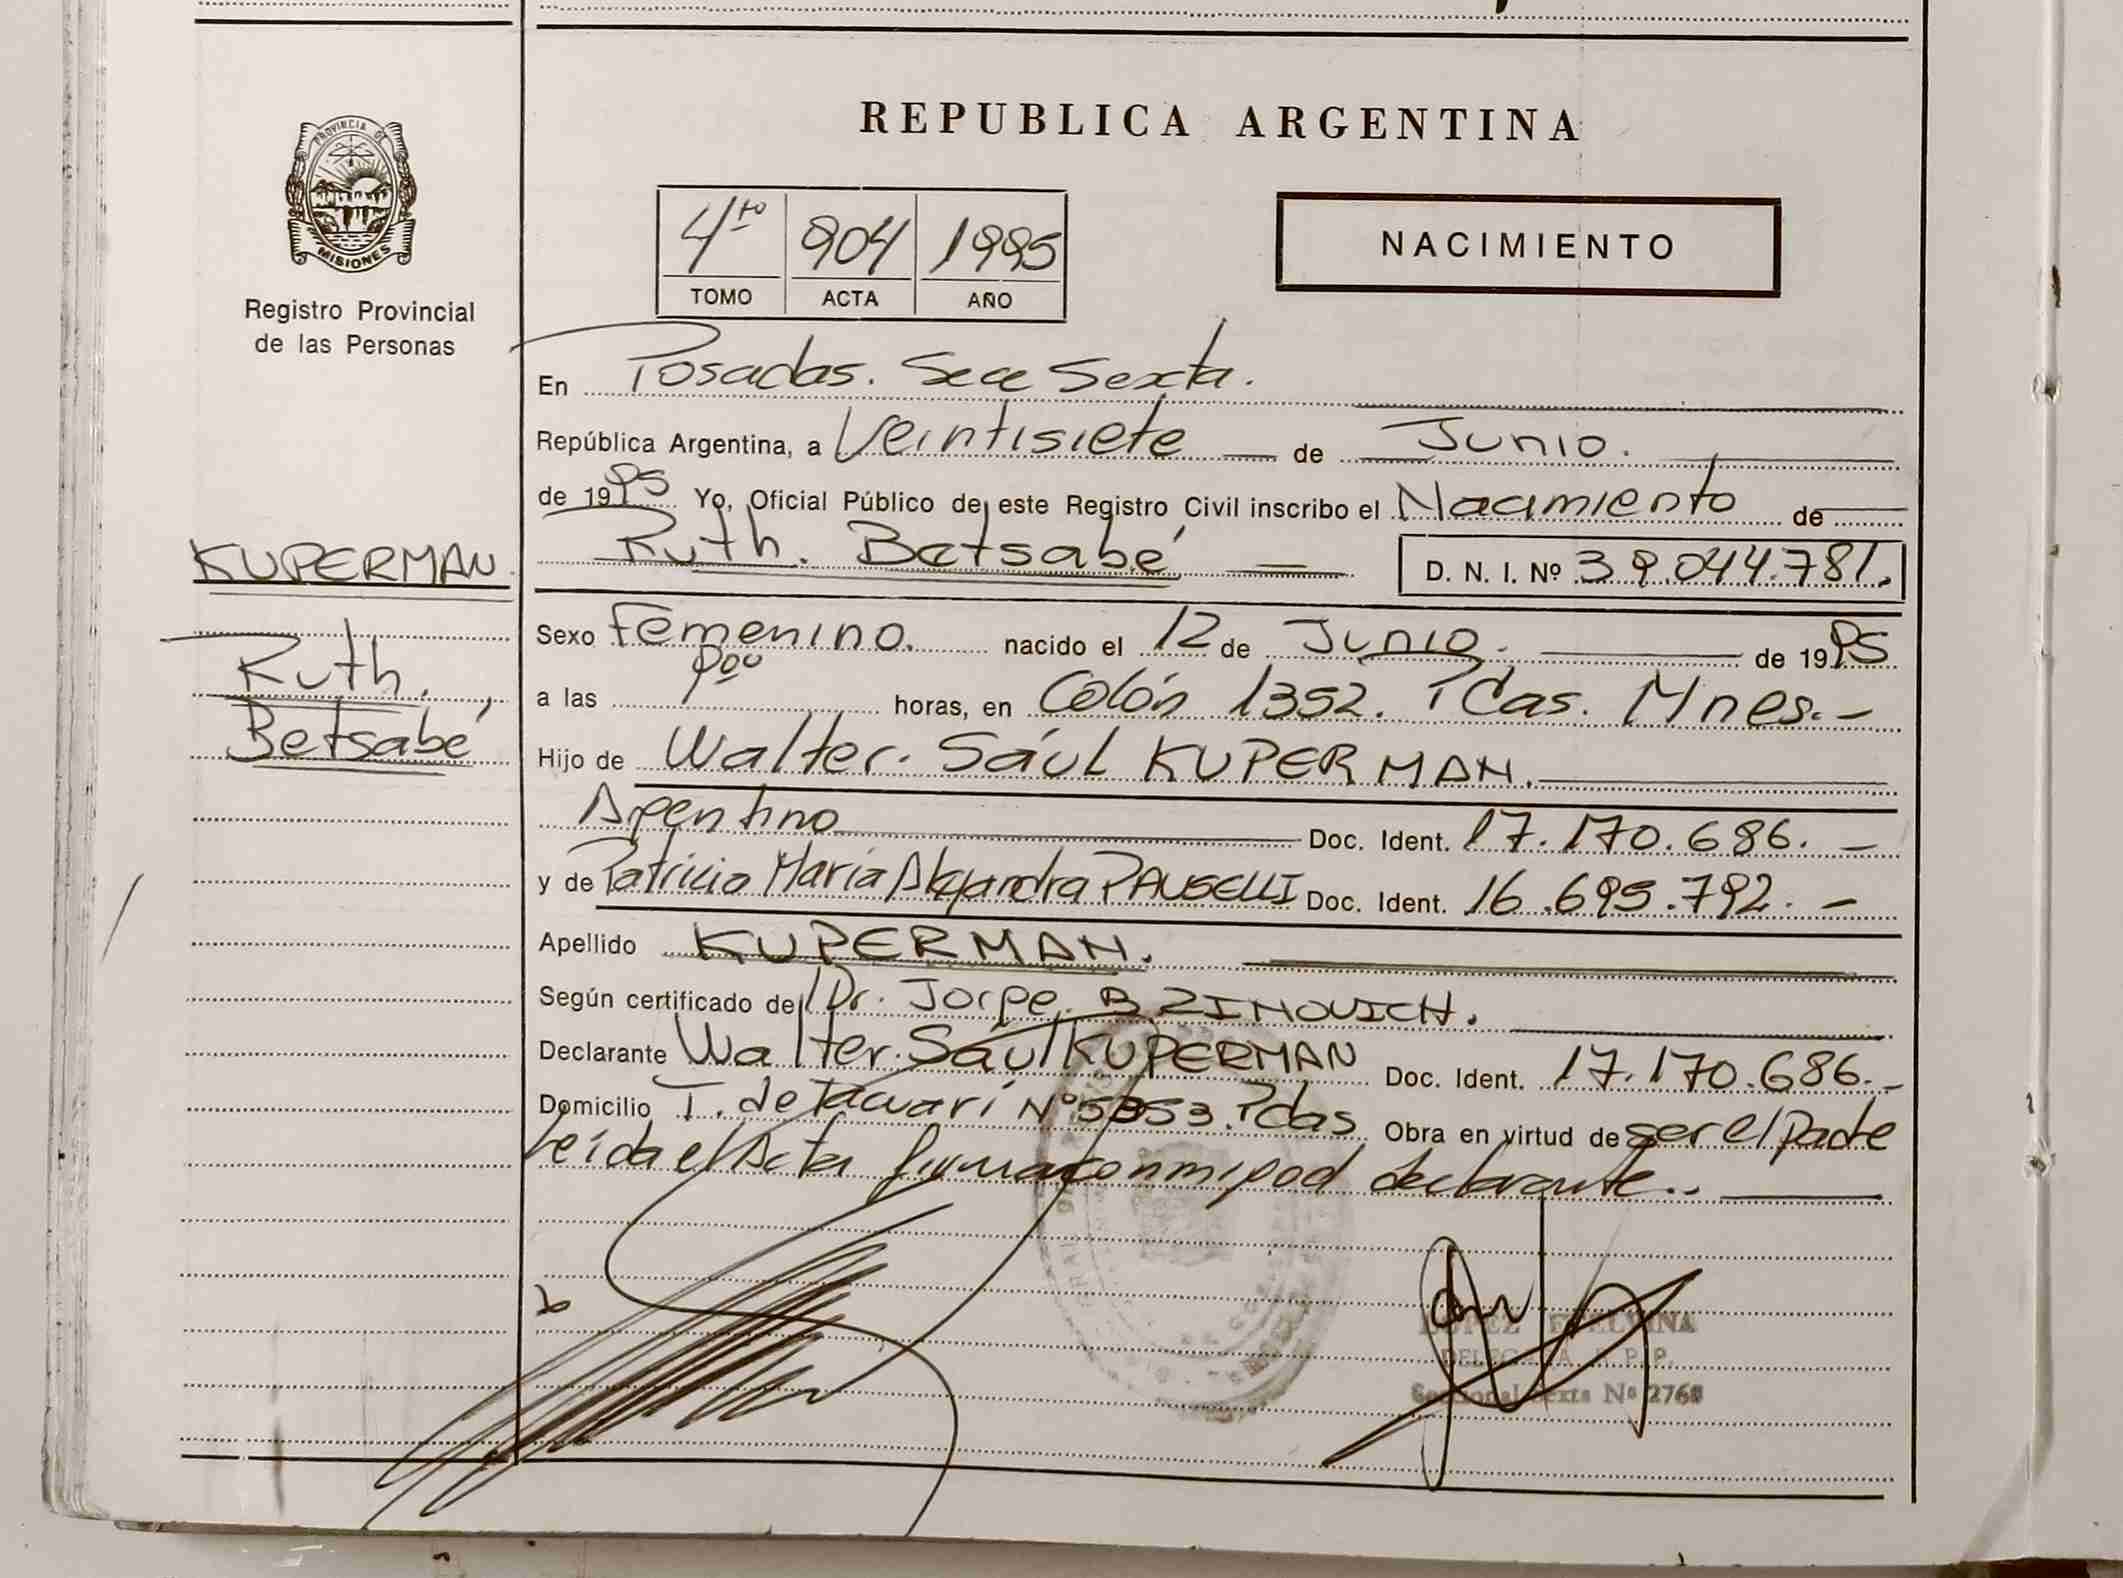 REPUBLICA ARGENTINA
PROVINCIA DE
MISIONES
Registro Provincial
de las Personas
4to 904 1995
TOMO ACTA AÑO
NACIMIENTO
En Posadas. Secc Sexta.
República Argentina, a Veintisiete de Junio.
de 1995 Yo, Oficial Público de este Registro Civil inscribo el Nacimiento de
KUPERMAN
Ruth. Betsabé D. N. I. Nº 39.044.781.
Ruth.
Betsabé
Sexo Femenino. nacido el 12 de Junio. de 1995
a las 9oo horas, en Colón 1352. Pdas. Mnes.-
Hijo de Walter. Sául KUPERMAN.
Argentino Doc. Ident. 17.170.686. -
y de Patricia María Alejandra PAUSELLI Doc. Ident. 16.695.792. -
Apellido KUPERMAN.
Según certificado de Dr. Jorge. B ZINOVICH.
Declarante Walter. Sául KUPERMAN Doc. Ident. 17.170.686.-
Domicilio T. de Tacuarí Nº 5353. Pdas Obra en virtud de ser el padre
Leída el Acta firma conmigo el declarante..
LOPEZ ETELVINA
DELEGADA R.P.P.
Seccional Sexta Nº 2768